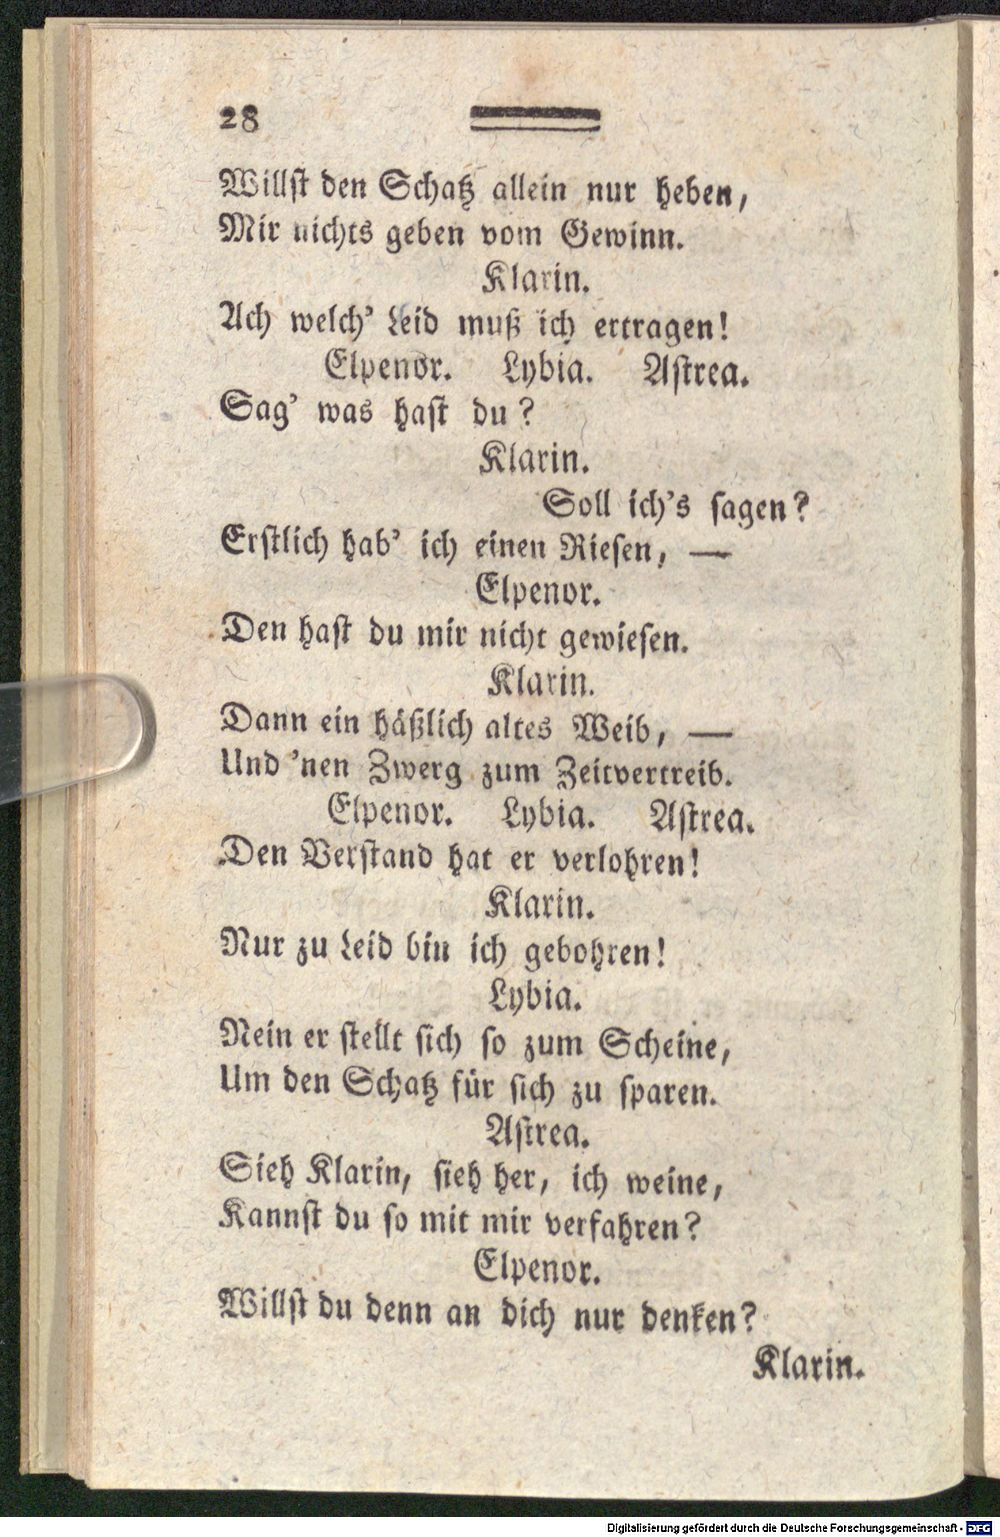 28
Willst den Schatz allein nur heben,
Mir nichts geben vom Gewinn.
Klarin.
Ach welch' Leid muß ich ertragen!
Elpenor. Lybia. Astrea.
Sag' was hast du?
Klarin.
Soll ich's sagen?
Erstlich hab' ich einen Riesen, —
Elpenor.
Den hast du mir nicht gewiesen.
Klarin.
Dann ein häßlich altes Weib, —
Und 'nen Zwerg zum Zeitvertreib.
Elpenor. Lybia. Astrea.
Den Verstand hat er verlohren!
Klarin.
Nur zu Leid bin ich gebohren!
Lybia.
Nein er stellt sich so zum Scheine,
Um den Schatz für sich zu sparen.
Astrea.
Sieh Klarin, sieh her, ich weine,
Kannst du so mit mir verfahren?
Elpenor.
Willst du denn an dich nur denken?
Klarin.
Digitalisierung gefördert durch die Deutsche Forschungsgemeinschaft - DFG